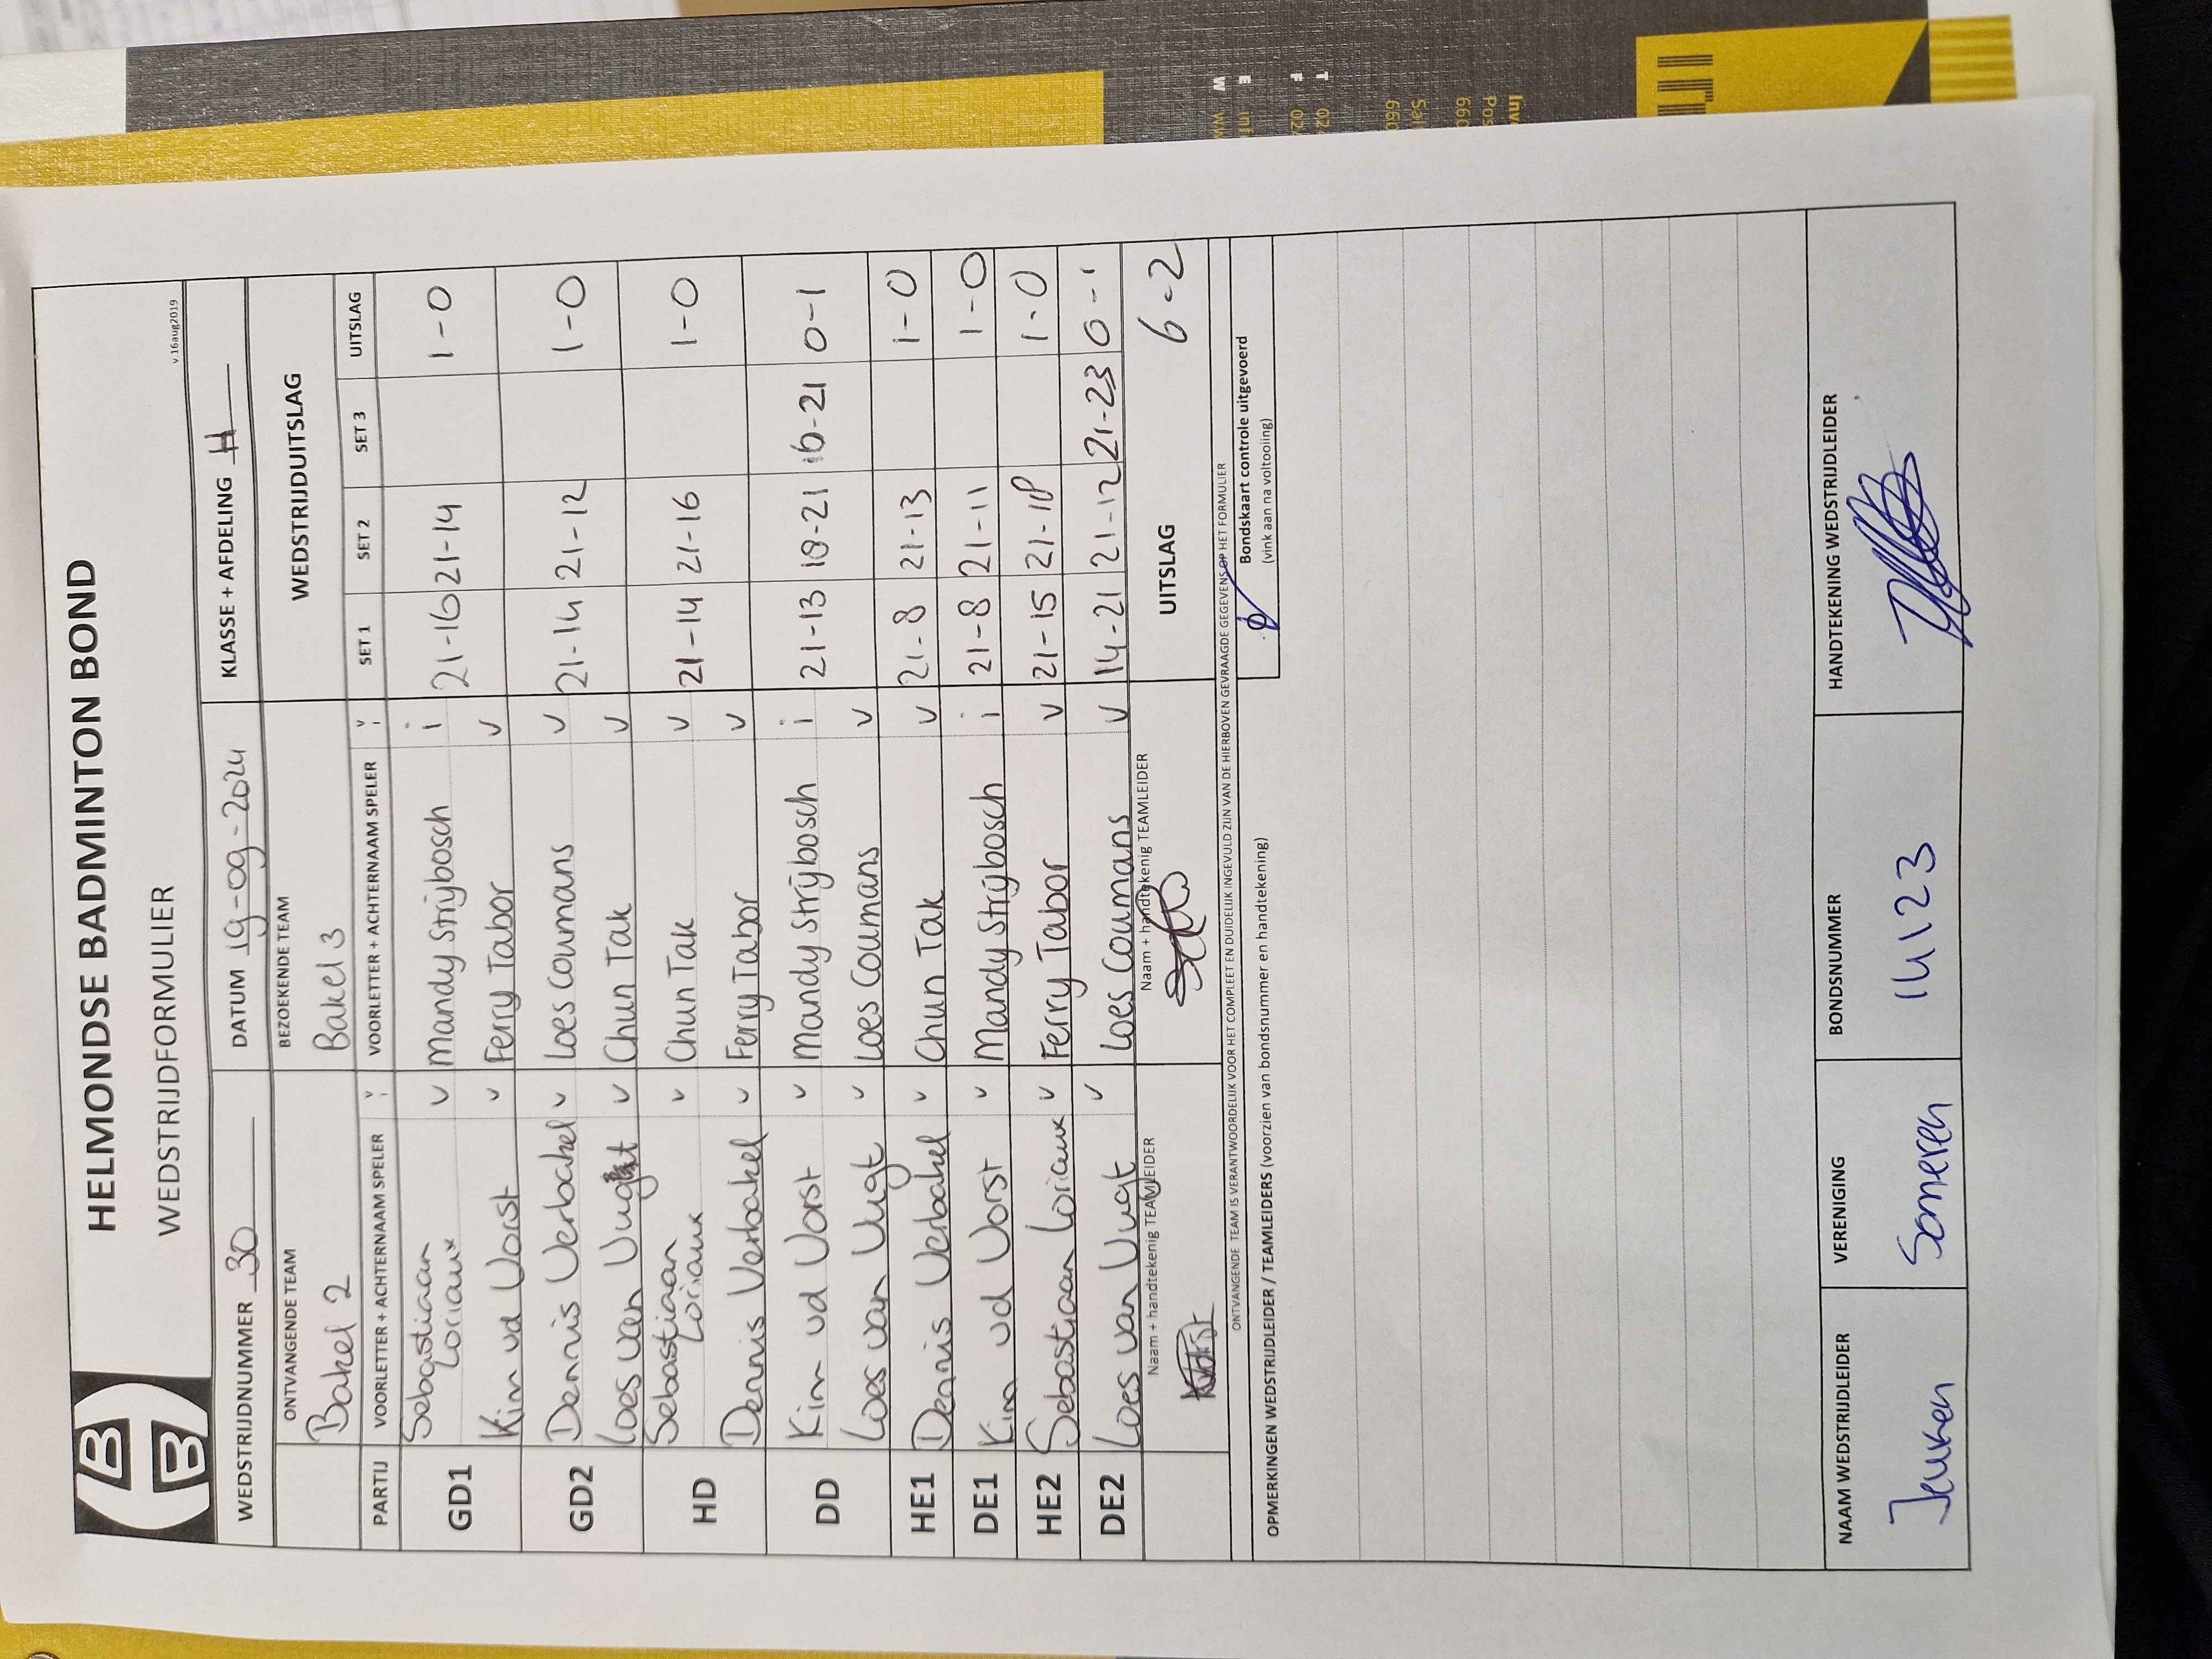 HELMONDSE BADMINTON BOND
WEDSTRIJDFORMULIER
v.16aug2019
WEDSTRIJDNUMMER 30 DATUM 19-09-2024 KLASSE + AFDELING H
ONTVANGENDE TEAM BEZOEKENDE TEAM WEDSTRIJDUITSLAG
Bakel 2 Bakel 3
PARTIJ VOORLETTER + ACHTERNAAM SPELER V i VOORLETTER + ACHTERNAAM SPELER V i SET 1 SET 2 SET 3 UITSLAG
GD1 Sebastiaan Loriaux v Mandy Strijbosch i 21-16 21-14 1-0
Kim vd Vorst v Ferry Tabor v
GD2 Dennis Verbakel v Loes Coumans v 21-14 21-12 1-0
Loes van Vugt v Chun Tak v
HD Sebastiaan Loriaux v Chun Tak v 21-14 21-16 1-0
Dennis Verbakel v Ferry Tabor v
DD Kim vd Vorst v Mandy Strijbosch i 21-13 18-21 16-21 0-1
Loes van Vugt v Loes Coumans v
HE1 Dennis Verbakel v Chun Tak v 21-8 21-13 1-0
DE1 Kim vd Vorst v Mandy Strijbosch i 21-8 21-11 1-0
HE2 Sebastiaan Loriaux v Ferry Tabor v 21-15 21-18 1-0
DE2 Loes van Vugt v Loes Coumans v 14-21 21-12 21-23 0-1
Naam + handtekenig TEAMLEIDER Naam + handtekenig TEAMLEIDER UITSLAG 6-2
ONTVANGENDE TEAM IS VERANTWOORDELIJK VOOR HET COMPLEET EN DUIDELIJK INGEVULD ZIJN VAN DE HIERBOVEN GEVRAAGDE GEGEVENS OP HET FORMULIER
Bondskaart controle uitgevoerd
(vink aan na voltooiing)
OPMERKINGEN WEDSTRIJDLEIDER / TEAMLEIDERS (voorzien van bondsnummer en handtekening)
NAAM WEDSTRIJDLEIDER VERENIGING BONDSNUMMER HANDTEKENING WEDSTRIJDLEIDER
Jeuken Someren 14123